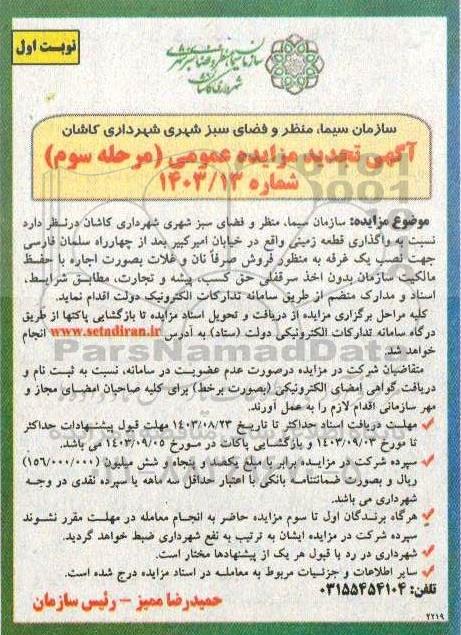 نوبت اول
سازمان سیما، منظر و فضای سبز شهری
شهرداری کاشان
سازمان سیما، منظر و فضای سبز شهری شهرداری کاشان
آگهی تجدید مزایده عمومی (مرحله سوم)
شماره ۱۴۰۳/۱۳
موضوع مزایده: سازمان سیما، منظر و فضای سبز شهری شهرداری کاشان درنظر دارد
نسبت به واگذاری قطعه زمینی واقع در خیابان امیرکبیر بعد از چهارراه سلمان فارسی
جهت نصب یک غرفه به منظور فروش صرفاً نان و غلات بصورت اجاره با حفظ
مالکیت سازمان بدون اخذ سرقفلی حق کسب، پیشه و تجارت، مطابق شرایط،
اسناد و مدارک منضم از طریق سامانه تدارکات الکترونیک دولت اقدام نماید.
کلیه مراحل برگزاری مزایده از دریافت و تحویل اسناد مزایده تا بازگشایی پاکتها از طریق
درگاه سامانه تدارکات الکترونیکی دولت (ستاد) به آدرس www.setadiran.ir انجام
خواهد شد.
ParsNamadData
متقاضیان شرکت در مزایده درصورت عدم عضویت در سامانه، نسبت به ثبت نام و
دریافت گواهی امضای الکترونیکی (بصورت برخط) برای کلیه صاحبان امضای مجاز و
مهر سازمانی اقدام لازم را به عمل آورند.
✓ مهلت دریافت اسناد حداکثر تا تاریخ ۱۴۰۳/۰۸/۲۳ مهلت قبول پیشنهادات حداکثر
تا مورخ ۱۴۰۳/۰۹/۰۳ و بازگشایی پاکات در مورخ ۱۴۰۳/۰۹/۰۵ می باشد.
✓ سپرده شرکت در مزایده برابر با مبلغ یکصد و پنجاه و شش میلیون (۱۵۶/۰۰۰/۰۰۰)
ریال و بصورت ضمانتنامه بانکی با اعتبار حداقل سه ماهه یا سپرده نقدی در وجه
شهرداری می باشد.
✓ هرگاه برندگان اول تا سوم مزایده حاضر به انجام معامله در مهلت مقرر نشوند
سپرده شرکت در مزایده ایشان به ترتیب به نفع شهرداری ضبط خواهد گردید.
✓ شهرداری در رد یا قبول هر یک از پیشنهادها مختار است.
✓ سایر اطلاعات و جزئیات مربوط به معامله در اسناد مزایده درج شده است.
تلفن: ۰۳۱۵۵۴۵۴۱۰۴
حمیدرضا ممیز - رئیس سازمان
۲۲۱۹